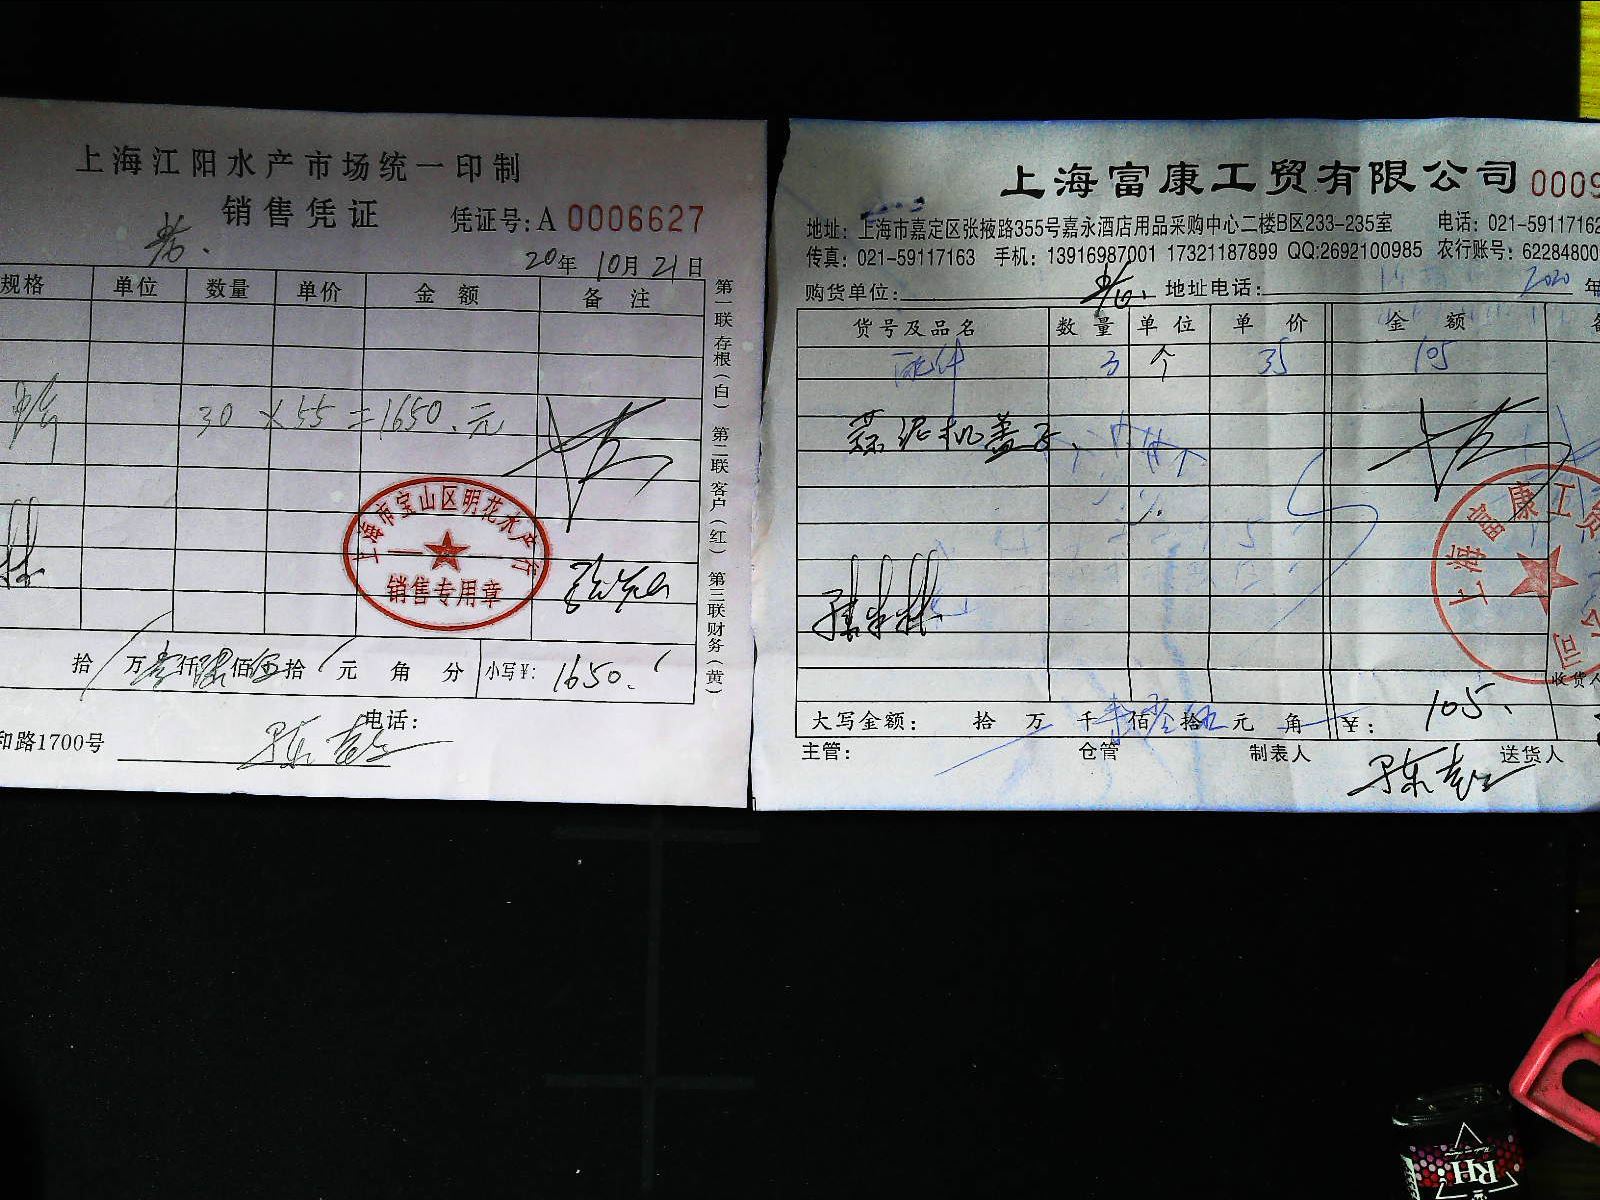 上海江阳水产市场统一印制
销售凭证 凭证号: A 0006627
20年 10月 21日
规格 单位 数量 单价 金额 备注
30 × 55 = 1650.元
上海市宝山区明花水产行
销售专用章
拾 万壹仟陆佰伍拾 元 角 分 小写¥: 1650.
电话:
和路1700号
陈
第一联存根(白) 第二联客户(红) 第三联财务(黄)
上海富康工贸有限公司 0009
地址: 上海市嘉定区张掖路355号嘉永酒店用品采购中心二楼B区233-235室 电话: 021-5911716
传真: 021-59117163 手机: 13916987001 17321187899 QQ:2692100985 农行账号: 62284800
购货单位: 地址电话: 2020 年
货号及品名 数量 单位 单价 金额
配件 3 个 35 105
蒜泥机盖子
上海富康工贸
公司
收货人
大写金额: 拾 万 千 壹佰零拾伍元 角 ¥: 105.
主管: 仓管 制表人 送货人
陈
RH